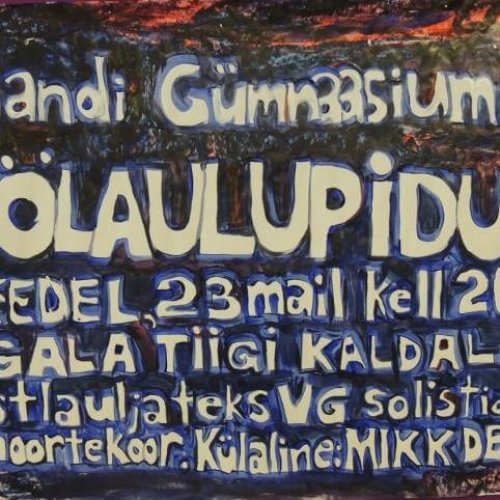 andi Gümnaasium
ÖLAULUPiDU
EDEL, 23 mail kell 20
GALA TiiGi KALDAL
stlauljateks VG solistid
noortekoor. Külaline: MIKK DE